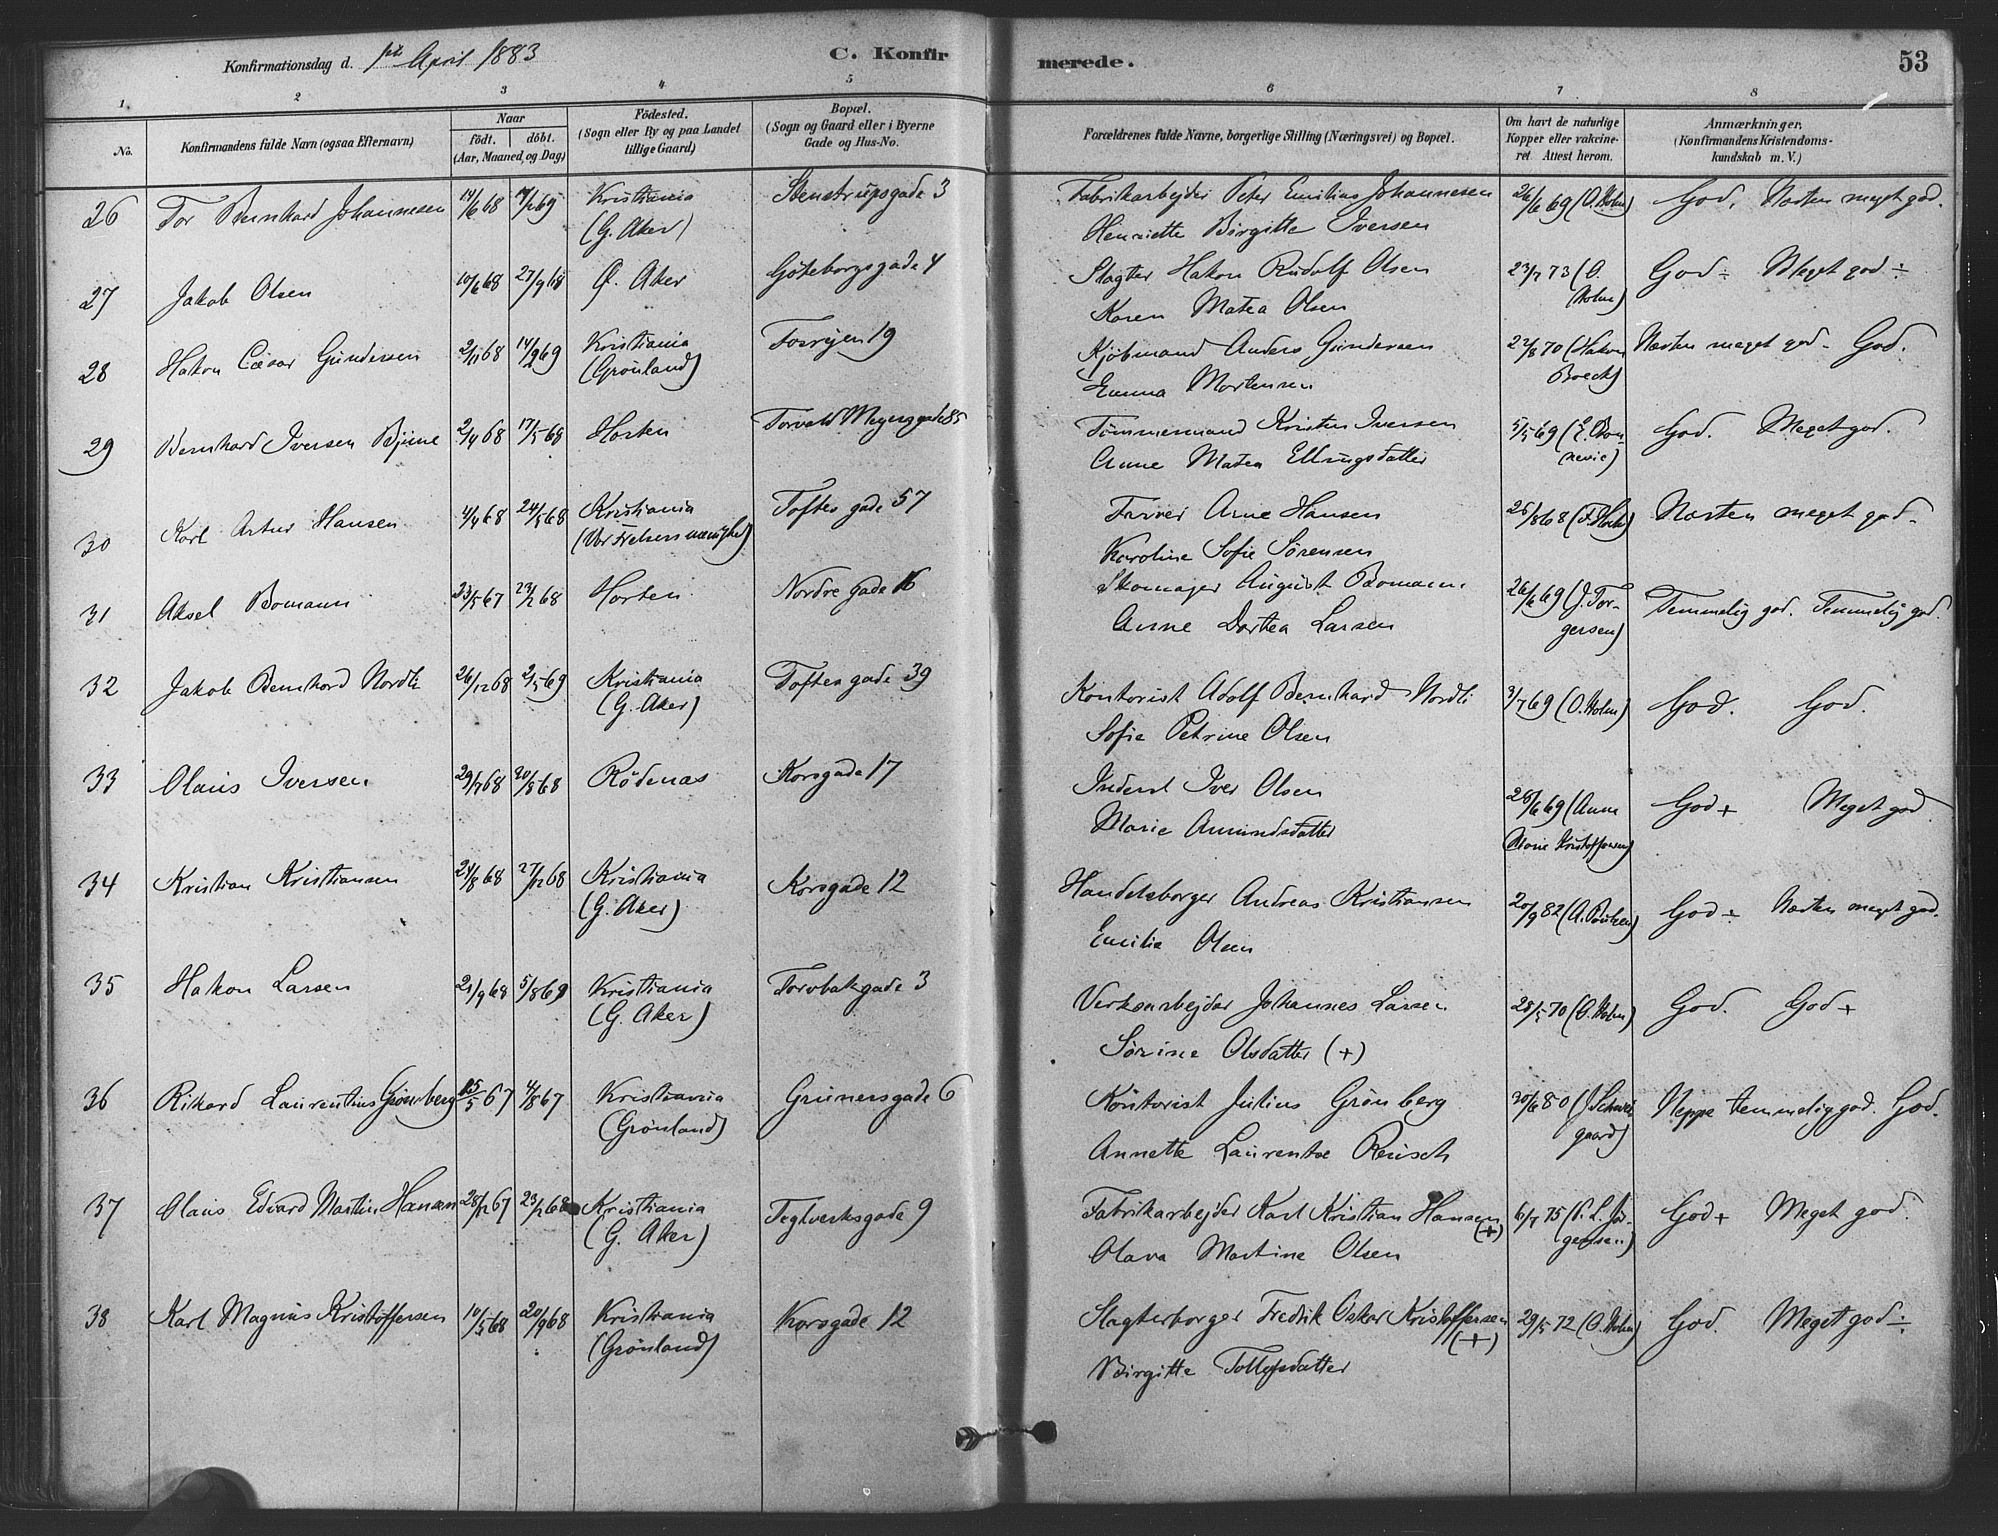 Konfirmationsdag d. 1ste April 1883 C. Konfirmerede. 53
1 2 3 4 5 6 7 8
No. Konfirmandens fulde Navn (ogsaa Efternavn) Naar født. døbt. (Aar, Maaned, og Dag) Fødested. (Sogn eller By og paa Landet tillige Gaard) Bopæl. (Sogn og Gaard eller i Byerne Gade og Hus-No. Forældrenes fulde Navne, borgerlige Stilling (Næringsvei) og Bopæl. Om havt de naturlige Kopper eller vakcineret Attest herom. Anmærkninger, (Konfirmandens Kristendomskundskab m. V.)
26 Tor Bernhard Johannesen 14/6 68 69 Kristiania Stenstrupsgade 3 Fabrikarbejder Peter Emilius Johannesen 26/6 69 (O. Holm) God, Næsten meget god.
(G. Aker) Henriette Birgitte Iversen
27 Jakob Olsen 10/6 68 27/9 68 Ø. Aker Göteborgsgade 4 Slagter Hakon Rudolf Olsen 23/7 73 (O. Holm) God ÷ Meget god ÷
Karen Matea Olsen
28 Hakon Cæsar Gundersen 2/11 68 14/2 69 Kristiania Fosvejen 19 Kjöbmand Anders Gundersen 22/8 70 (Hakon Boeck) Næsten meget god - God.
(Grønland) Emma Mortensen
29 Bernhard Iversen Bjune 2/4 68 17/5 68 Horten Torvald Meyersgade 85 Tömmermand Kristen Iversen 5/5 69 (E. Bonnevie) God. Meget god.
Anne Matea Ellingsdatter
30 Karl Artur Hansen 4/4 68 24/5 68 Kristiania Toftesgade 57 Farver Arne Hansen 25/8 68 (F. Holst) Næsten meget god.
(Vor Frelsers menighed) Karoline Sofie Sörensen
31 Aksel Bomann 23/5 67 23/2 68 Horten Nordregade 16 Skomager August Bomann 26/6 69 (J. Torgersen) Temmelig god. Temmelig god
Anne Dortea Larsen
32 Jakob Bernhard Nordli 26/12 68 2/5 69 Kristiania Toftesgade 39 Kontorist Adolf Bernhard Nordli 3/7 69 (O. Holm) God. God.
(G. Aker) Sofie Petrine Olsen
33 Olaus Iversen 29/7 68 30/8 68 Rödenæs Korsgade 17 Inderst Iver Olsen 28/6 69 (Anne Marie Kristoffersen) God + Meget god
Marie Amundsdatter
34 Kristian Kristiansen 24/8 68 27/12 68 Kristiania Korsgade 12 Handelsborger Andreas Kristiansen 20/9 82 (A. Poulsen) God ÷ Næsten meget god.
(G. Aker) Emilie Olsen
35 Hakon Larsen 21/9 68 5/8 69 Kristiania Torvbakgade 3 Verksarbejder Johannes Larsen 28/5 70 (O. Holm) God. God +
(G. Aker) Sörine Olsdatter (+)
36 Rikard Laurentius Grønberg 15/5 67 4/8 67 Kristiania Grünersgade 6 Kontorist Julius Grønberg 20/6 80 (J Schweigaard) Neppe temmelig god. God.
(Grønland) Annette Laurentse Reusch
37 Olaus Edvard Martin Hansen 28/12 67 23/2 68 Kristiania Teglverksgade 9 Fabrikarbejder Karl Kristian Hansen (+) 6/7 75 (P. L. Jörgensen) God + Meget god.
(G. Aker) Olava Martine Olsen
38 Karl Magnus Kristoffersen 10/5 68 20/9 68 Kristiania Korsgade 12 Slagterborger Fredrik Oskar Kristoffersen (+) 29/5 72 (O. Holm) God. Meget god ÷
(Grønland) Birgitte Tollefsdatter